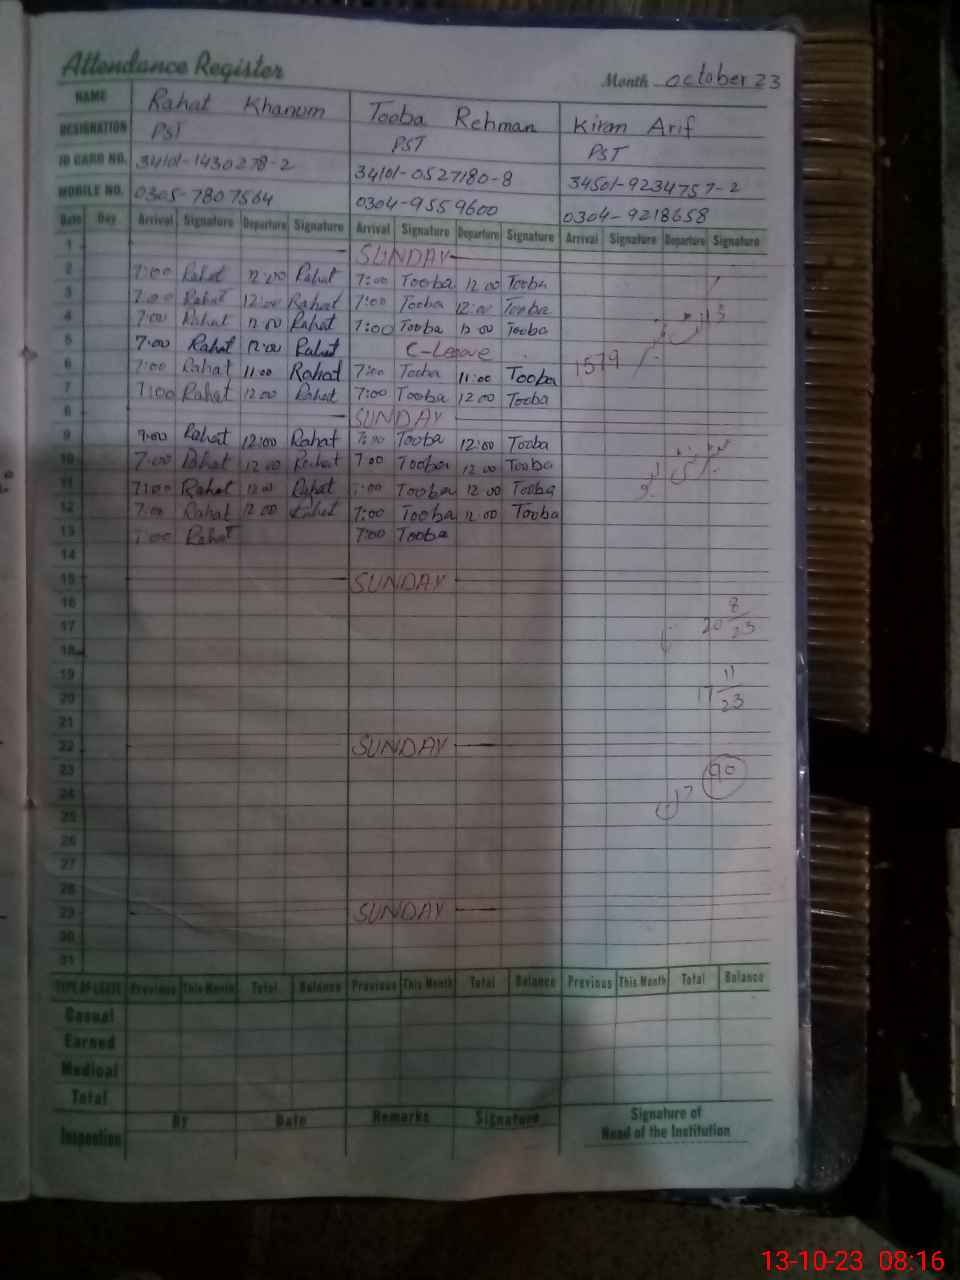 Attendance Register
Month October 23
NAME Rahat Khanum Tooba Rehman Kiran Arif
DESIGNATION PST PST PST
ID CARD NO. 34101-1430278-2 34101-0527180-8 34501-9234757-2
MOBILE NO. 0305-7807564 0304-9559600 0304-9218658
Date Day Arrival Signature Departure Signature Arrival Signature Departure Signature Arrival Signature Departure Signature
1 SUNDAY
2 7:00 Rahat 12:00 Rahat 7:00 Tooba 12 00 Tooba
3 7:00 Rahat 12:00 Rahat 7:00 Tooba 12:00 Tooba
4 7:00 Rahat 12 00 Rahat 7:00 Tooba 12 00 Tooba
5 7:00 Rahat 12:00 Rahat C-Leave
6 7:00 Rahat 11:00 Rahat 7:00 Tooba 11:00 Tooba 1579
7 7:00 Rahat 12 00 Rahat 7:00 Tooba 12 00 Tooba
8 SUNDAY
9 7:00 Rahat 12:00 Rahat 7:00 Tooba 12:00 Tooba
10 7:00 Rahat 12 00 Rahat 7 00 Tooba 12 00 Tooba
11 7:00 Rahat 12 00 Rahat 7:00 Tooba 12 00 Tooba
12 7:00 Rahat 12 00 Rahat 7:00 Tooba 12:00 Tooba
13 7:00 Rahat 7:00 Tooba
14
15 SUNDAY
16
17 20 8/23
18
19
20 17 11/23
21
22 SUNDAY
23 90
24
25
26
27
28
29 SUNDAY
30
31
TYPE OF LEAVE Previous This Month Total Balance Previous This Month Total Balance Previous This Month Total Balance
Casual
Earned
Medical
Total
Inspection By Date Remarks Signature Signature of
Head of the Institution
13-10-23 08:16